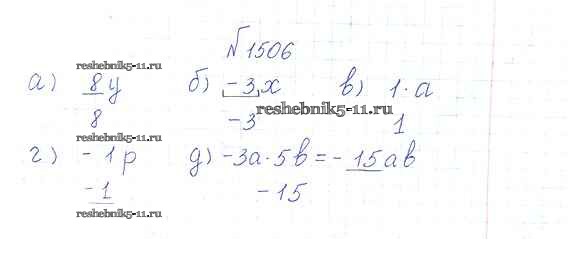 №1506
reshebnik5-11.ru
а) 8y б) -3x в) 1·a
8 -3 reshebnik5-11.ru 1
reshebnik5-11.ru
г) -1p д) -3a·5b = -15ab
-1 -15
reshebnik5-11.ru